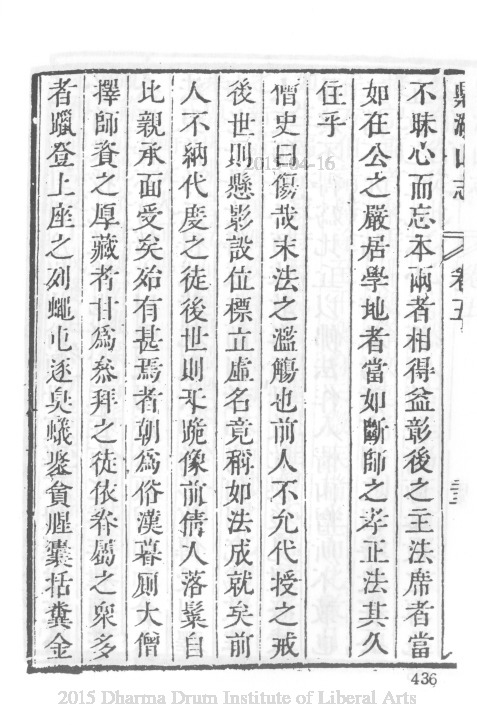 鼎湖山志 卷五
不昧心而忘本兩者相得益彰後之主法席者當
如在公之嚴居學地者當如斷師之孝正法其久
住乎
僧史曰傷哉末法之濫觴也前人不允代授之戒
後世則懸影設位標立虛名竟稱如法成就矣前
人不納代度之徒後世則又跪像前倩人落鬚自
比親承面受矣殆有甚焉者朝爲俗漢暮厠大僧
擇師資之厚藏者甘爲叅拜之徒依眷屬之眾多
者躐登上座之列蠅屯逐臭蟻聚貪腥囊括糞金
2015-04-16
436
2015 Dharma Drum Institute of Liberal Arts